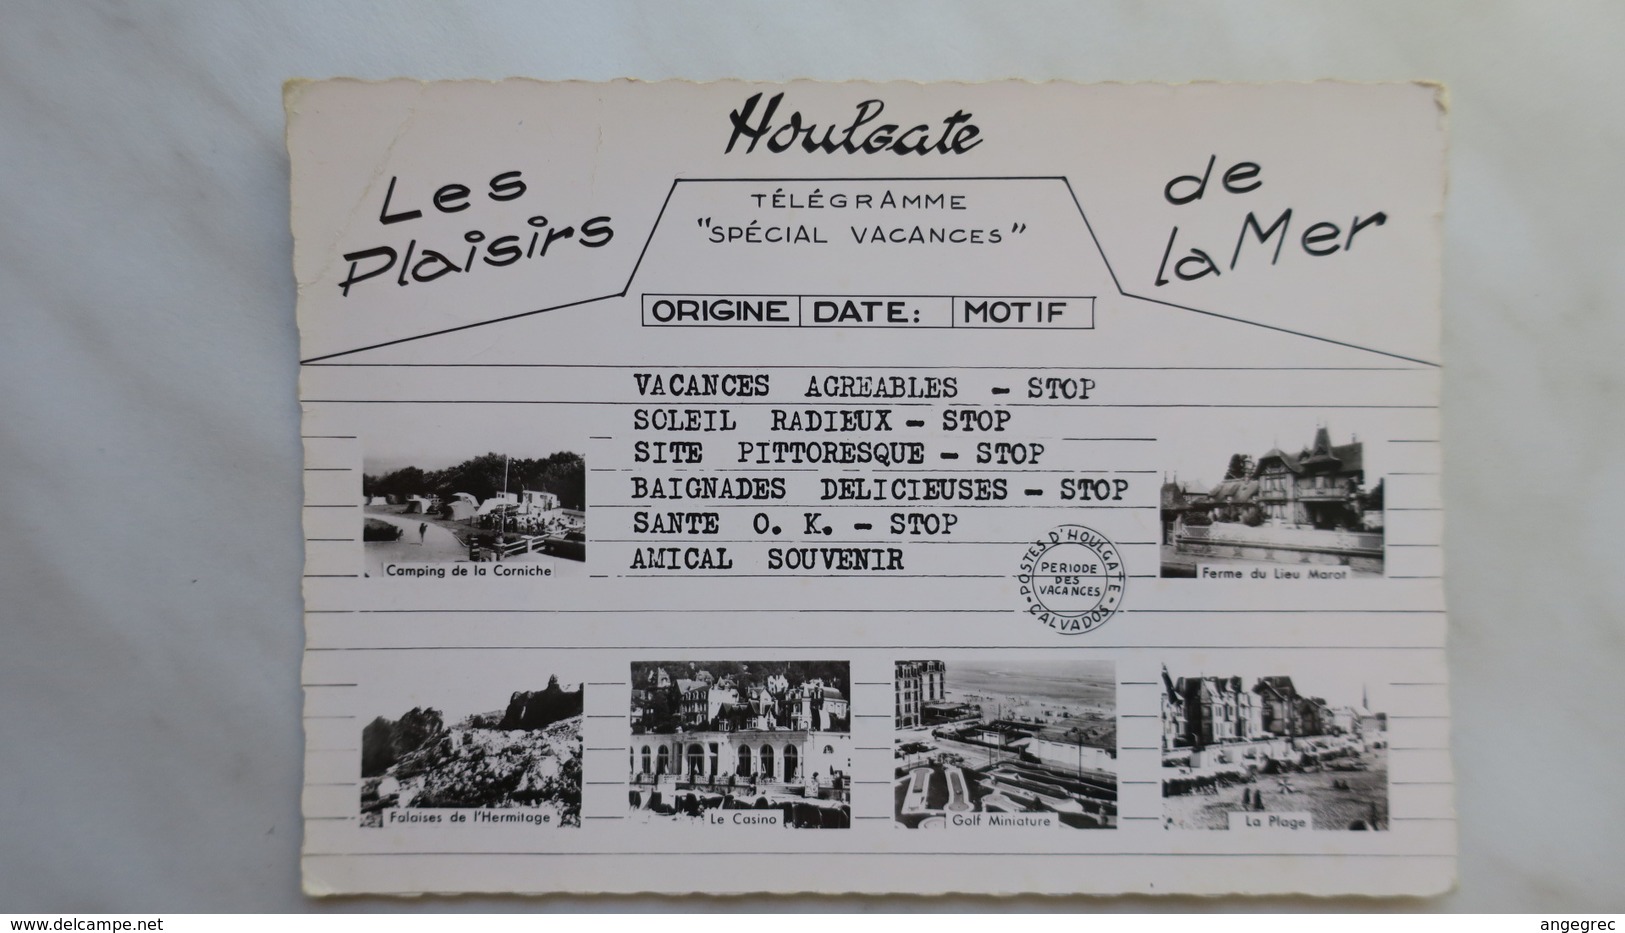 Houlgate
Les
Plaisirs
de
la Mer
TÉLÉGRAMME
"SPÉCIAL VACANCES"
ORIGINE DATE: MOTIF
VACANCES AGREABLES - STOP
SOLEIL RADIEUX - STOP
SITE PITTORESQUE - STOP
BAIGNADES DELICIEUSES - STOP
SANTE O. K. - STOP
AMICAL SOUVENIR
POSTES D'HOULGATE - CALVADOS -
PERIODE
DES
VACANCES
Camping de la Corniche
Ferme du Lieu Marot
Falaises de l'Hermitage
Le Casino
Golf Miniature
La Plage
www.delcampe.net
angegrec